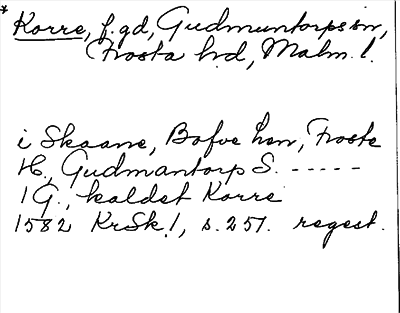 * Korre, f.gd, Gudmuntorps sn,
Frosta hd, Malm. l.
i Skaane, Bofve hsn, Froste
H., Gudmantorp S. -----
1 G., kaldet Korre
1582 KrSk 1, s. 257. regest.